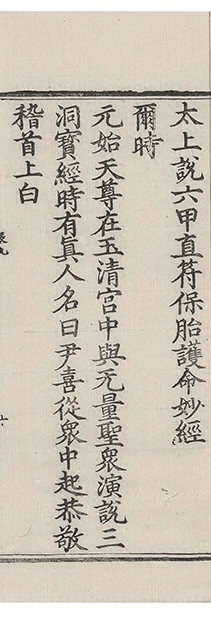 太上說六甲直符保胎護命妙經
爾時
元始天尊在玉清宮中與无量聖衆演說三
洞寶經時有眞人名曰尹喜從衆中起恭敬
稽首上白